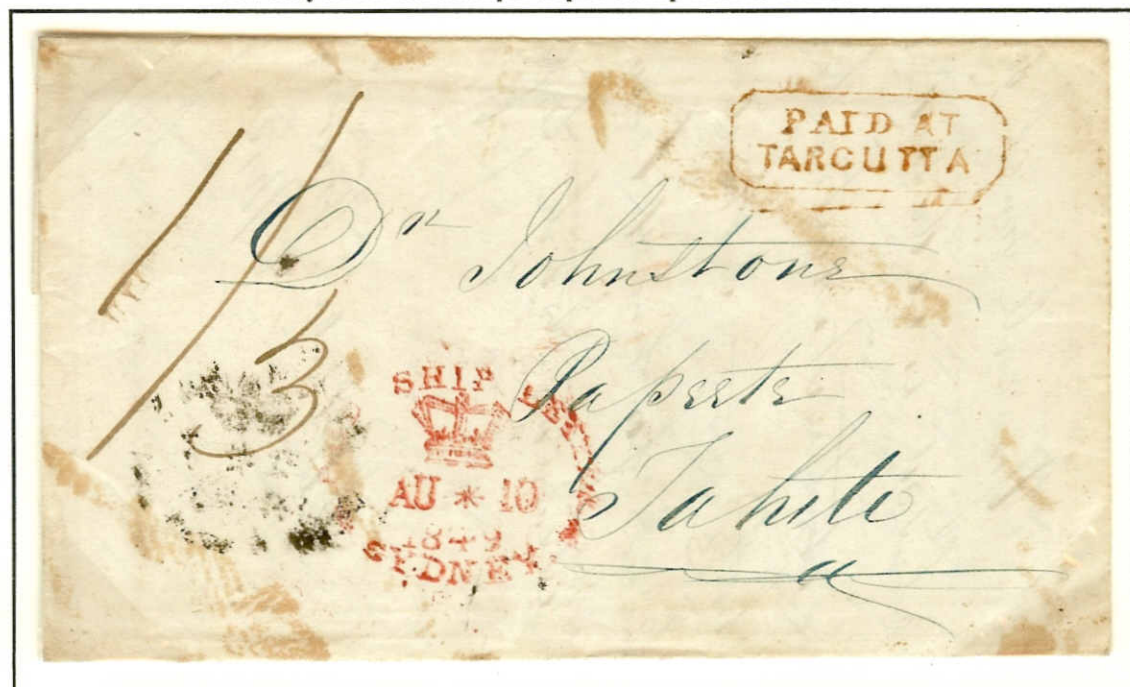 PAID AT
TARCUTTA
1/3
Dr Johnstone
Papeete
Tahiti
SHIP LETTER
AU * 10
1849
SYDNEY